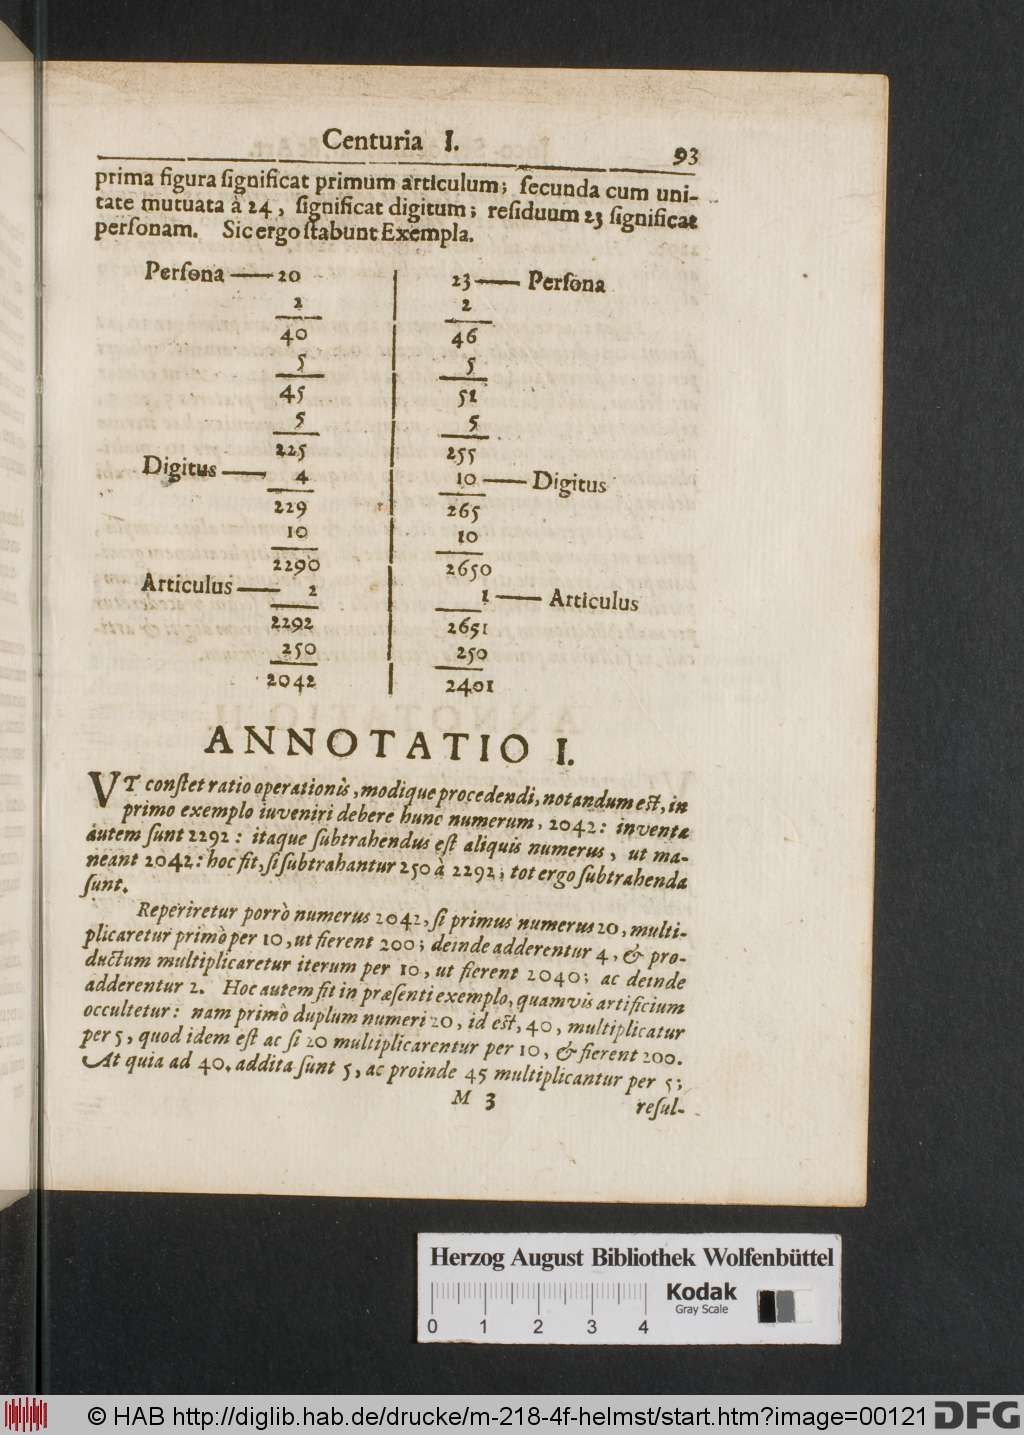 Centuria I.
93
prima figura ſignificat primum articulum; ſecunda cum uni-
tate mutuata à 24, ſignificat digitum; reſiduum 23 ſignificat
perſonam. Sic ergo ſtabunt Exempla.
Perſona — 20
2
40
5
45
5
225
Digitus — 4
229
10
2290
Articulus — 2
2292
250
2042
23 — Perſona
2
46
5
51
5
255
10 — Digitus
265
10
2650
1 — Articulus
2651
250
2401
ANNOTATIO I.
VT conſtet ratio operationis, modique procedendi, notandum eſt, in
primo exemplo iuveniri debere hunc numerum, 2042: inventæ
autem ſunt 2292: itaque ſubtrahendus eſt aliquis numerus, ut ma-
neant 2042: hoc fit, ſi ſubtrahantur 250 à 2292; tot ergo ſubtrahenda
ſunt.
Reperiretur porrò numerus 2042, ſi primus numerus 20, multi-
plicaretur primò per 10, ut fierent 200; deinde adderentur 4, & pro-
ductum multiplicaretur iterum per 10, ut fierent 2040; ac deinde
adderentur 2. Hoc autem fit in præſenti exemplo, quamvis artificium
occultetur: nam primò duplum numeri 20, id eſt, 40, multiplicatur
per 5, quod idem eſt ac ſi 20 multiplicarentur per 10, & fierent 200.
At quia ad 40. addita ſunt 5, ac proinde 45 multiplicantur per 5;
M 3
reſul-
Herzog August Bibliothek Wolfenbüttel
Kodak
Gray Scale
0 1 2 3 4
© HAB http://diglib.hab.de/drucke/m-218-4f-helmst/start.htm?image=00121
DFG